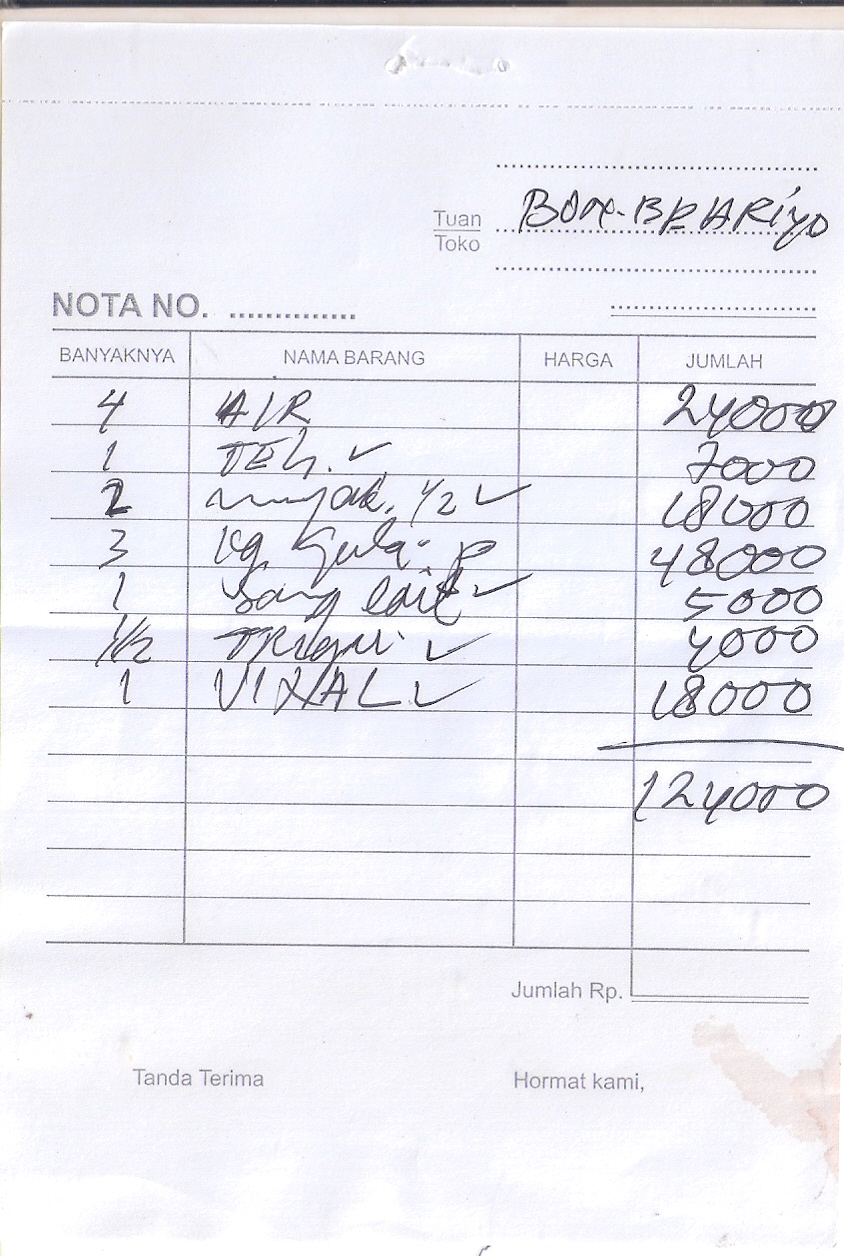 Tuan
Toko
Bon. BP. ARiyo
NOTA NO.
BANYAKNYA NAMA BARANG HARGA JUMLAH
4 AIR 24000
1 TEh. ✓ 7000
2 minyak. 1/2 ✓ 18000
3 kg gula P 48000
1 ✓ 5000
1/2 TRigu ✓ 4000
1 VIXAL ✓ 18000
124000
Jumlah Rp.
Tanda Terima Hormat kami,